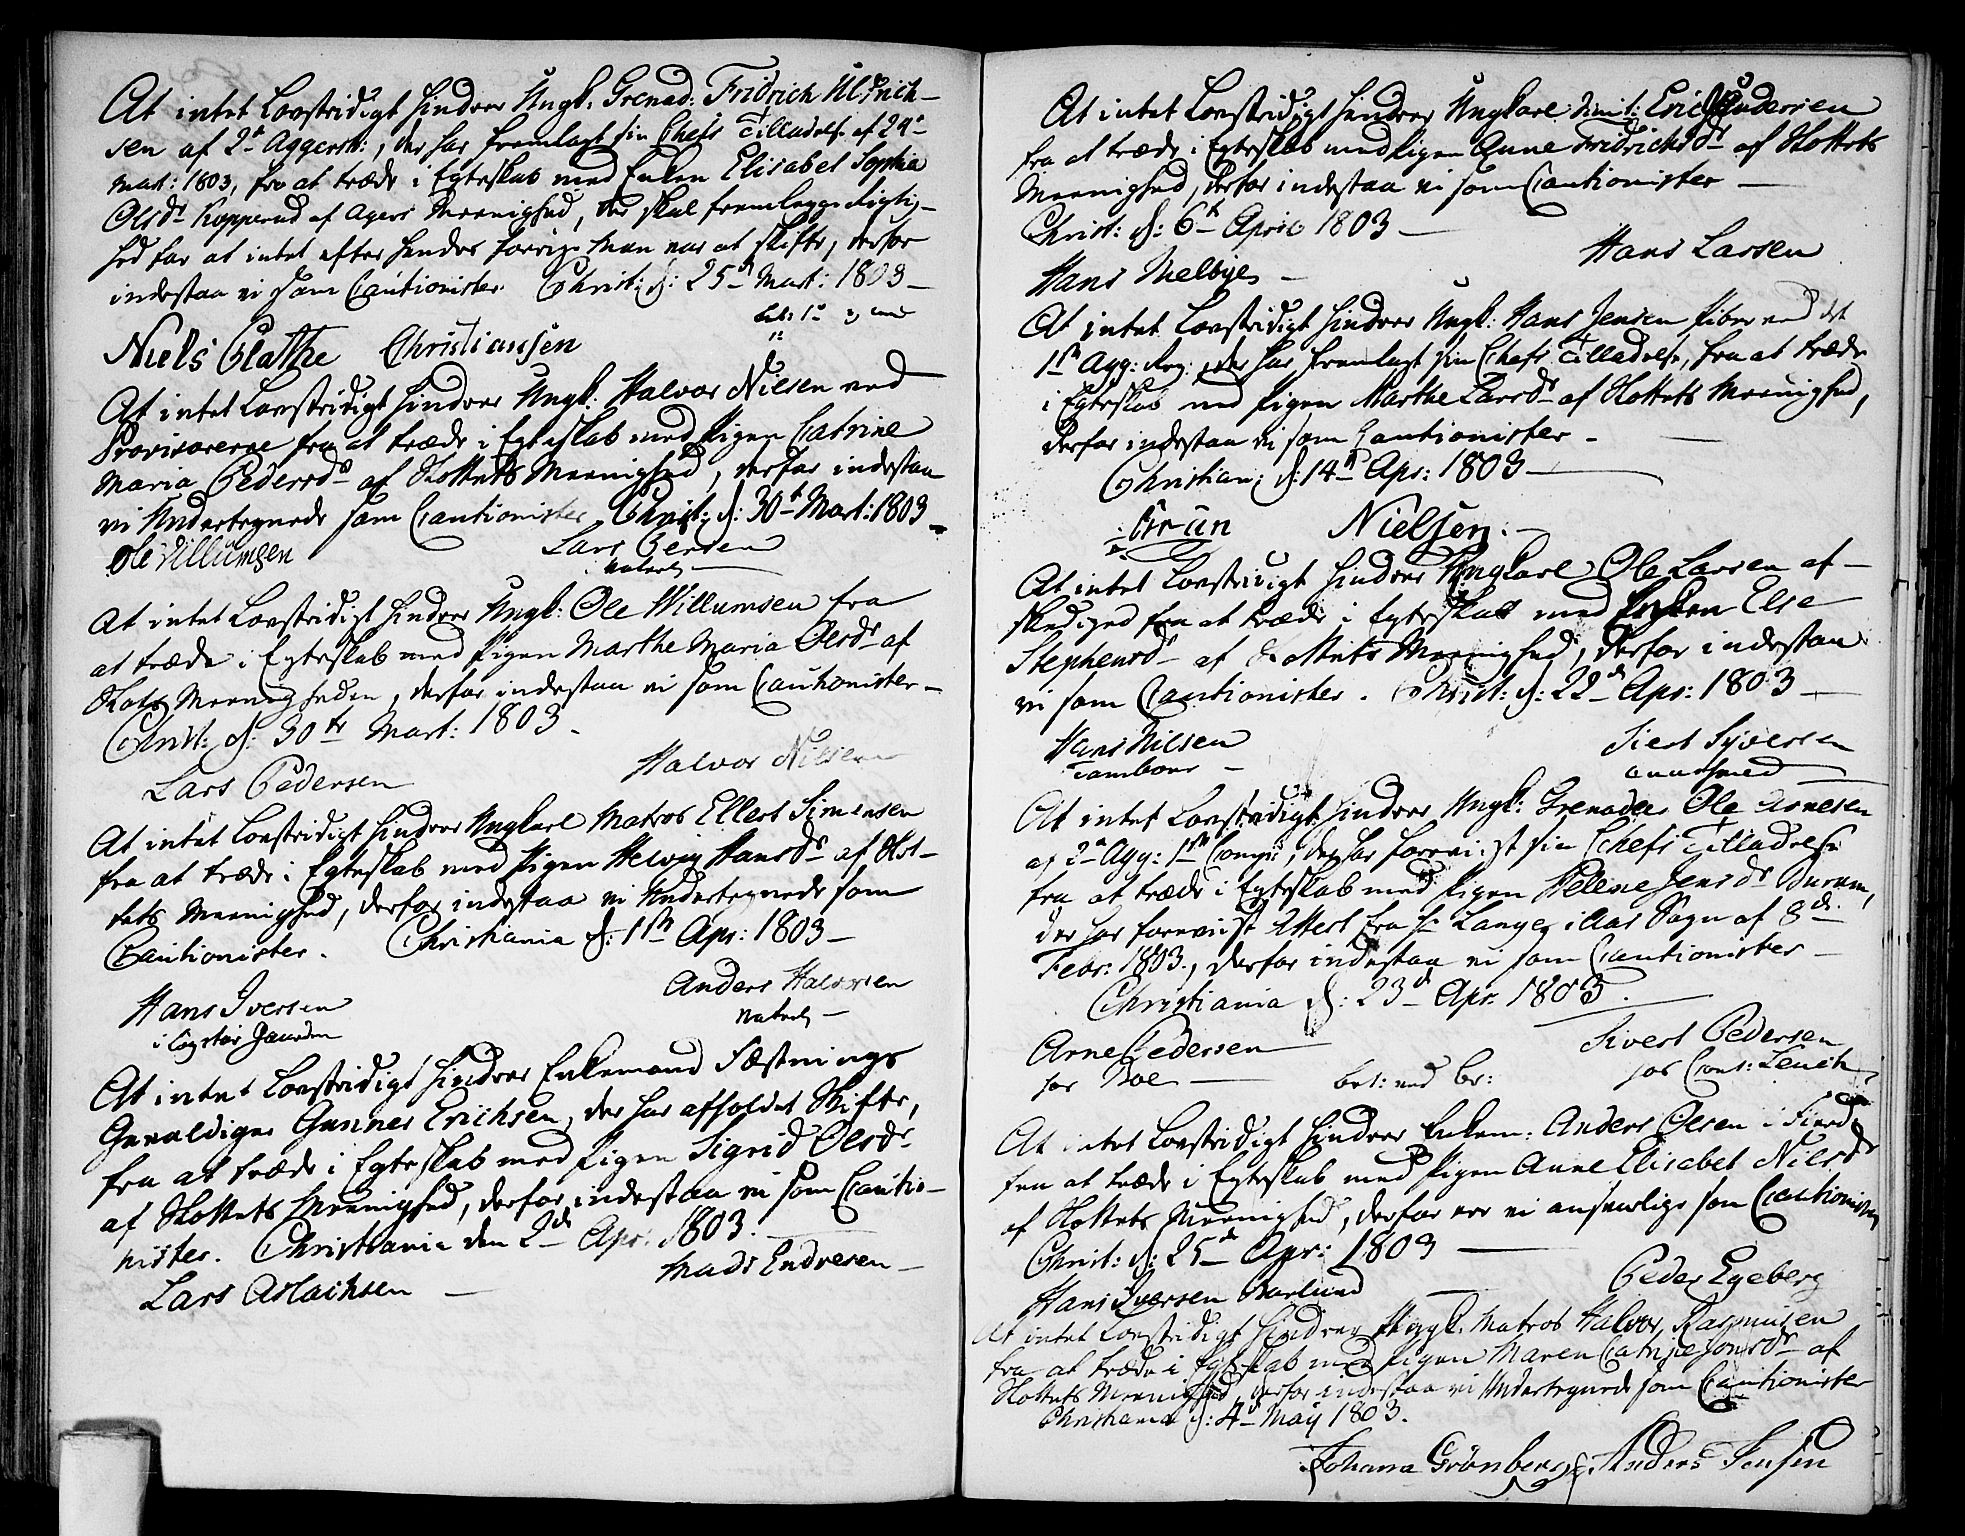 At intet Lovstridigt hindrer Ungk: Grenad: Fridrich Uldrich-
sen af 2den Aggersh:, der har fremlagt sin Chefs Tilladelse af 24de
Mart: 1803, fra at træde i Egteskab med Enken Elisabet Sophia
Olsdr Kopperud af Agers Meenighed, der skal fremlegge Rigtig-
hed for at intet efter hendes forrige Man var at skifte, derfor
indestaa vi som Cautionister. Christ: d: 25de Mart: 1803
Niels Clathe Christiansen
At intet Lovstridigt hindrer Ungk: Halvor Nilsen ved
Provisorerne fra at træde i Egteskab med Pigen Catrine
Maria Pedersdr af Slottets Meenighed, derfor indestaa
vi Undertegnede som Cautionister Christ: d: 30te Mart: 1803
Ole Villumsen Lars Persen
At intet Lovstridigt hindrer Ungk: Ole Willumsen fra
at træde i Egteskab med Pigen Marthe Maria Olsdr af
Slots Meenigheden, derfor indestaa vi som Cautionister
Christ: d: 30te Mart: 1803.
Lars Pedersen Halvor Nilsen
At intet Lovstridigt hindrer Ungkarl Matros Ellert Simensen
fra at træde i Egteskab med Pigen Helvig Hansdr af Slot-
tets Meenighed, derfor indestaa vi Undertegnede som
Cautionister. Christiania d: 1ste Apr: 1803
Hans Iversen Anders Halvorsen
Matros
At intet Lovstridigt hindrer Enkemand Fæstnings
Gevaldiger Gunner Erichsen, der har afholdet Skifte,
fra at træde i Egteskab med Pigen Sigrid Olsdr
af Slottets Meenighed, derfor indestaa vi som Cautio-
nister. Christiania den 2den Apr: 1803.
Lars Aslachsen Mads Endresen
At intet Lovstridigt hindrer Ungkarl dimit: Erich Andersen
fra at træde i Egteskab med Pigen Anne Fridrichsdr af Slottets
Meenighed, derfor indestaa vi som Cautionister
Christ: d: 6te April 1803
Hans Melbye Hans Larsen
At intet Lovstridigt hindrer Ungk: Hans Jensen Piber ved det
1ste Agg: Reg:, der har fremlagt sin Chefs Tilladelse, fra at træde
i Egteskab med Pigen Marthe Larsdr af Slottets Meenighed,
derfor indestaa vi som Cautionister
Christian: d: 14de Apr: 1803
Brun Nielsen
At intet Lovstridigt hindrer Ungkarl Ole Larsen af-
skediged fra at træde i Egteskab med Enken Else
Stephensdr af Slottets Meenighed, derfor indestaa
vi som Cautionister. Christ: d: 22de Apr: 1803
Hans Nilsen Siert Syversen
Tambour
At intet Lovstridigt hindrer Ungk: Grenadeer Ole Arnesen
af 2den Agg: 1ste Comp:, der har foreviist sin Chefs Tilladelse
fra at træde i Egteskab med Pigen Helene Jensdr Durum,
der har foreviist Attest fra Hr Lange i Aas Sogn af 8de
Febr: 1803, derfor indestaa vi som Cautionister
Christiania d: 23de Apr: 1803.
Arne Pedersen Sivert Pedersen
hos Boe
At intet Lovstridigt hindrer Enkem: Anders Olsen i Fierd:
fra at træde i Egteskab med Pigen Anne Elisabet Nilsdr
af Slottets Meenighed, derfor ere vi ansvarlige som Cautionister
Christ: d: 25de Apr: 1803
Hans Iversen Peder Egeberg
At intet Lovstridigt hindrer Ungk: Matros Halvor Rasmusen
fra at træde i Egteskab med Pigen Maren Catrine Jonsdr af
Slottets Meenighed, derfor indestaa vi Undertegnede som Cautionister
Christiania d: 4de May 1803.
Johana Grönberg Anders Jensen